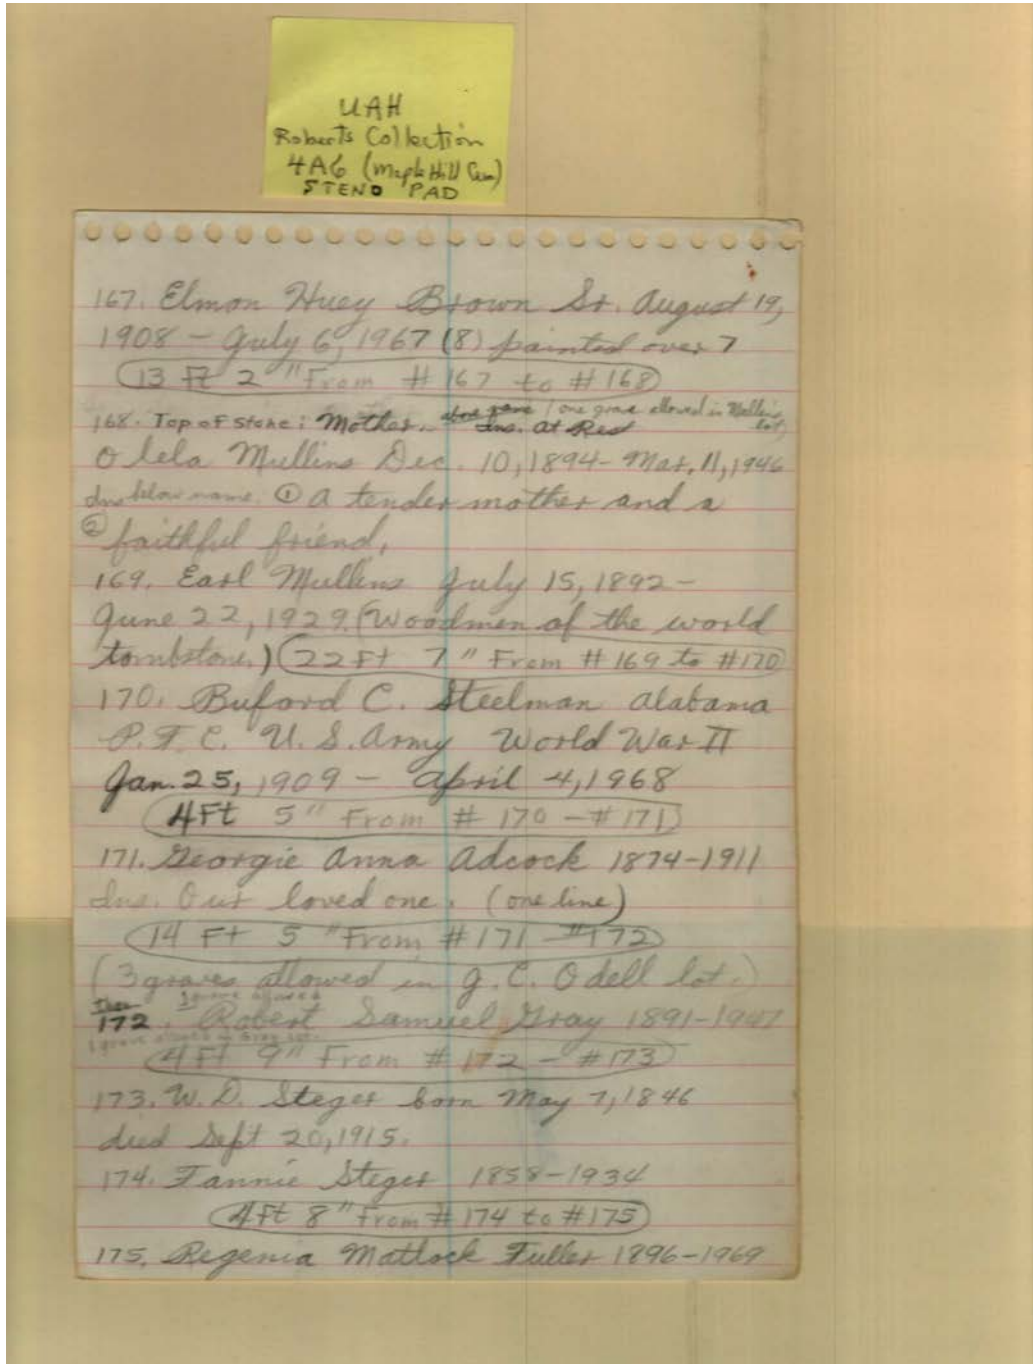 UAH
Roberts Collection
4A6 (Maple Hill Cem)
STENO PAD
167. Elmon Huey Brown Sr. August 19,
1908 - July 6, 1967 (8) painted over 7
13 Ft 2 " From # 167 to # 168
above name / one grave allowed in Mullins lot,
168. Top of stone: Mother. Ins. At Rest
Olela Mullins Dec. 10, 1894 - Mar. 11, 1946
Ins below name. ① A tender mother and a
② faithful friend,
169. Earl Mullins July 15, 1892 -
June 22, 1929. (Woodmen of the world
tombstone.) (22 Ft 7 " From # 169 to # 170)
170. Buford C. Steelman Alabama
P.F.C. U.S. Army World War II
Jan. 25, 1909 - April 4, 1968
4 Ft 5 " From # 170 - # 171
171. Georgie Anna Adcock 1874-1911
Ins. Our loved one. (one line)
14 Ft 5 " From # 171 - # 172
(3 graves allowed in J. C. Odell lot.)
grave allowed
172. Robert Samuel Gray 1891-1947
1 grave allowed in Gray lot.
4 Ft 9 " From # 172 - # 173
173. W. D. Steger born May 7, 1846
died Sept 20, 1915.
174. Fannie Steger 1858-1934
4 Ft 8 " From # 174 to # 175
175. Regenia Matlock Fuller 1896-1969